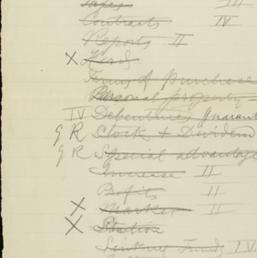 Taxes III
Contracts IV
Reports II
X
Terms of purchase
Personal property
IV Debentures guarant
G R Stock & Dividend
G R Special advantage
Increase II
Profits II
X Market II
X Station
Sinking Funds IV